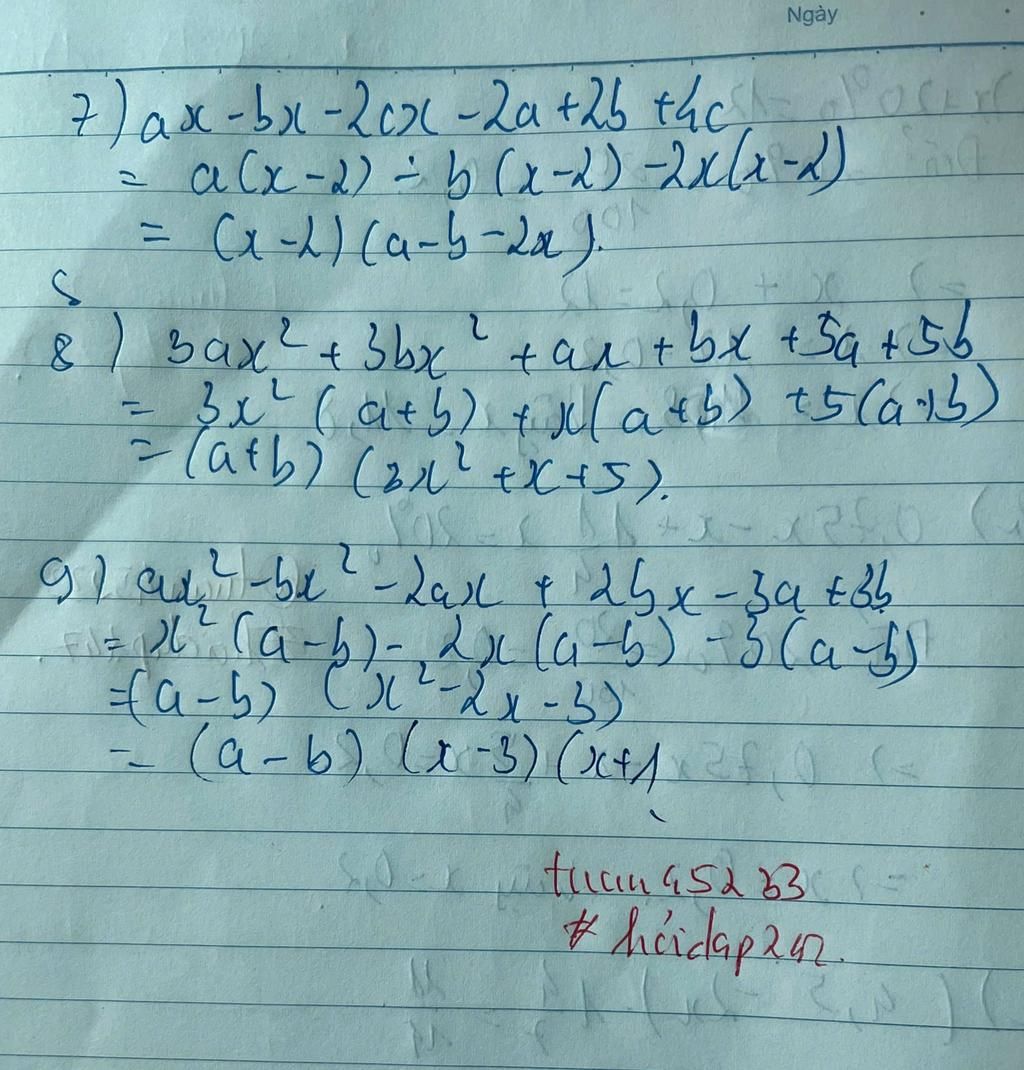 Ngày
7) ax - bx - 2cx - 2a + 2b + 4c
= a(x-2) - b(x-2) - 2x(x-2)
= (x-2)(a-b-2x).
8) 3ax² + 3bx² + ax + bx + 5a + 5b
= 3x²(a+b) + x(a+b) + 5(a+b)
= (a+b)(3x²+x+5).
9) ax² - bx² - 2ax + 2bx - 3a + 3b
= x²(a-b) - 2x(a-b) - 3(a-b)
=(a-b)(x²-2x-3)
= (a-b)(x-3)(x+1
tuan45233
# hoidap247.